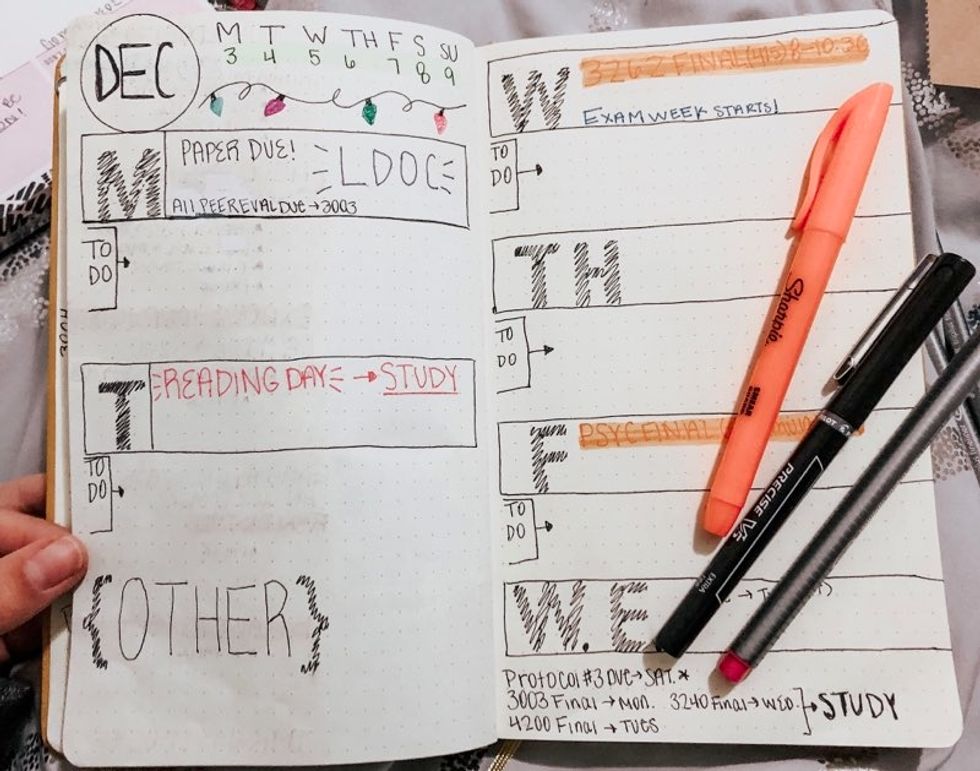 DEC
M T W TH F S SU
3 4 5 6 7 8 9
M
PAPER DUE!
LDOC
All PEER EVAL DUE → 3003
TO
DO
T
READING DAY → STUDY
TO
DO
{OTHER}
W
3262 FINAL (HIS) 8-10:30
EXAM WEEK STARTS!
TO
DO
TH
TO
DO
F
PSYC FINAL
TO
DO
W.E
Protocol #3 DUE → SAT. *
3003 Final → MON. 3240 Final → WED.
4200 Final → TUES
→ STUDY
Sharpie
SMEAR
PRECISE V5
EXTRA